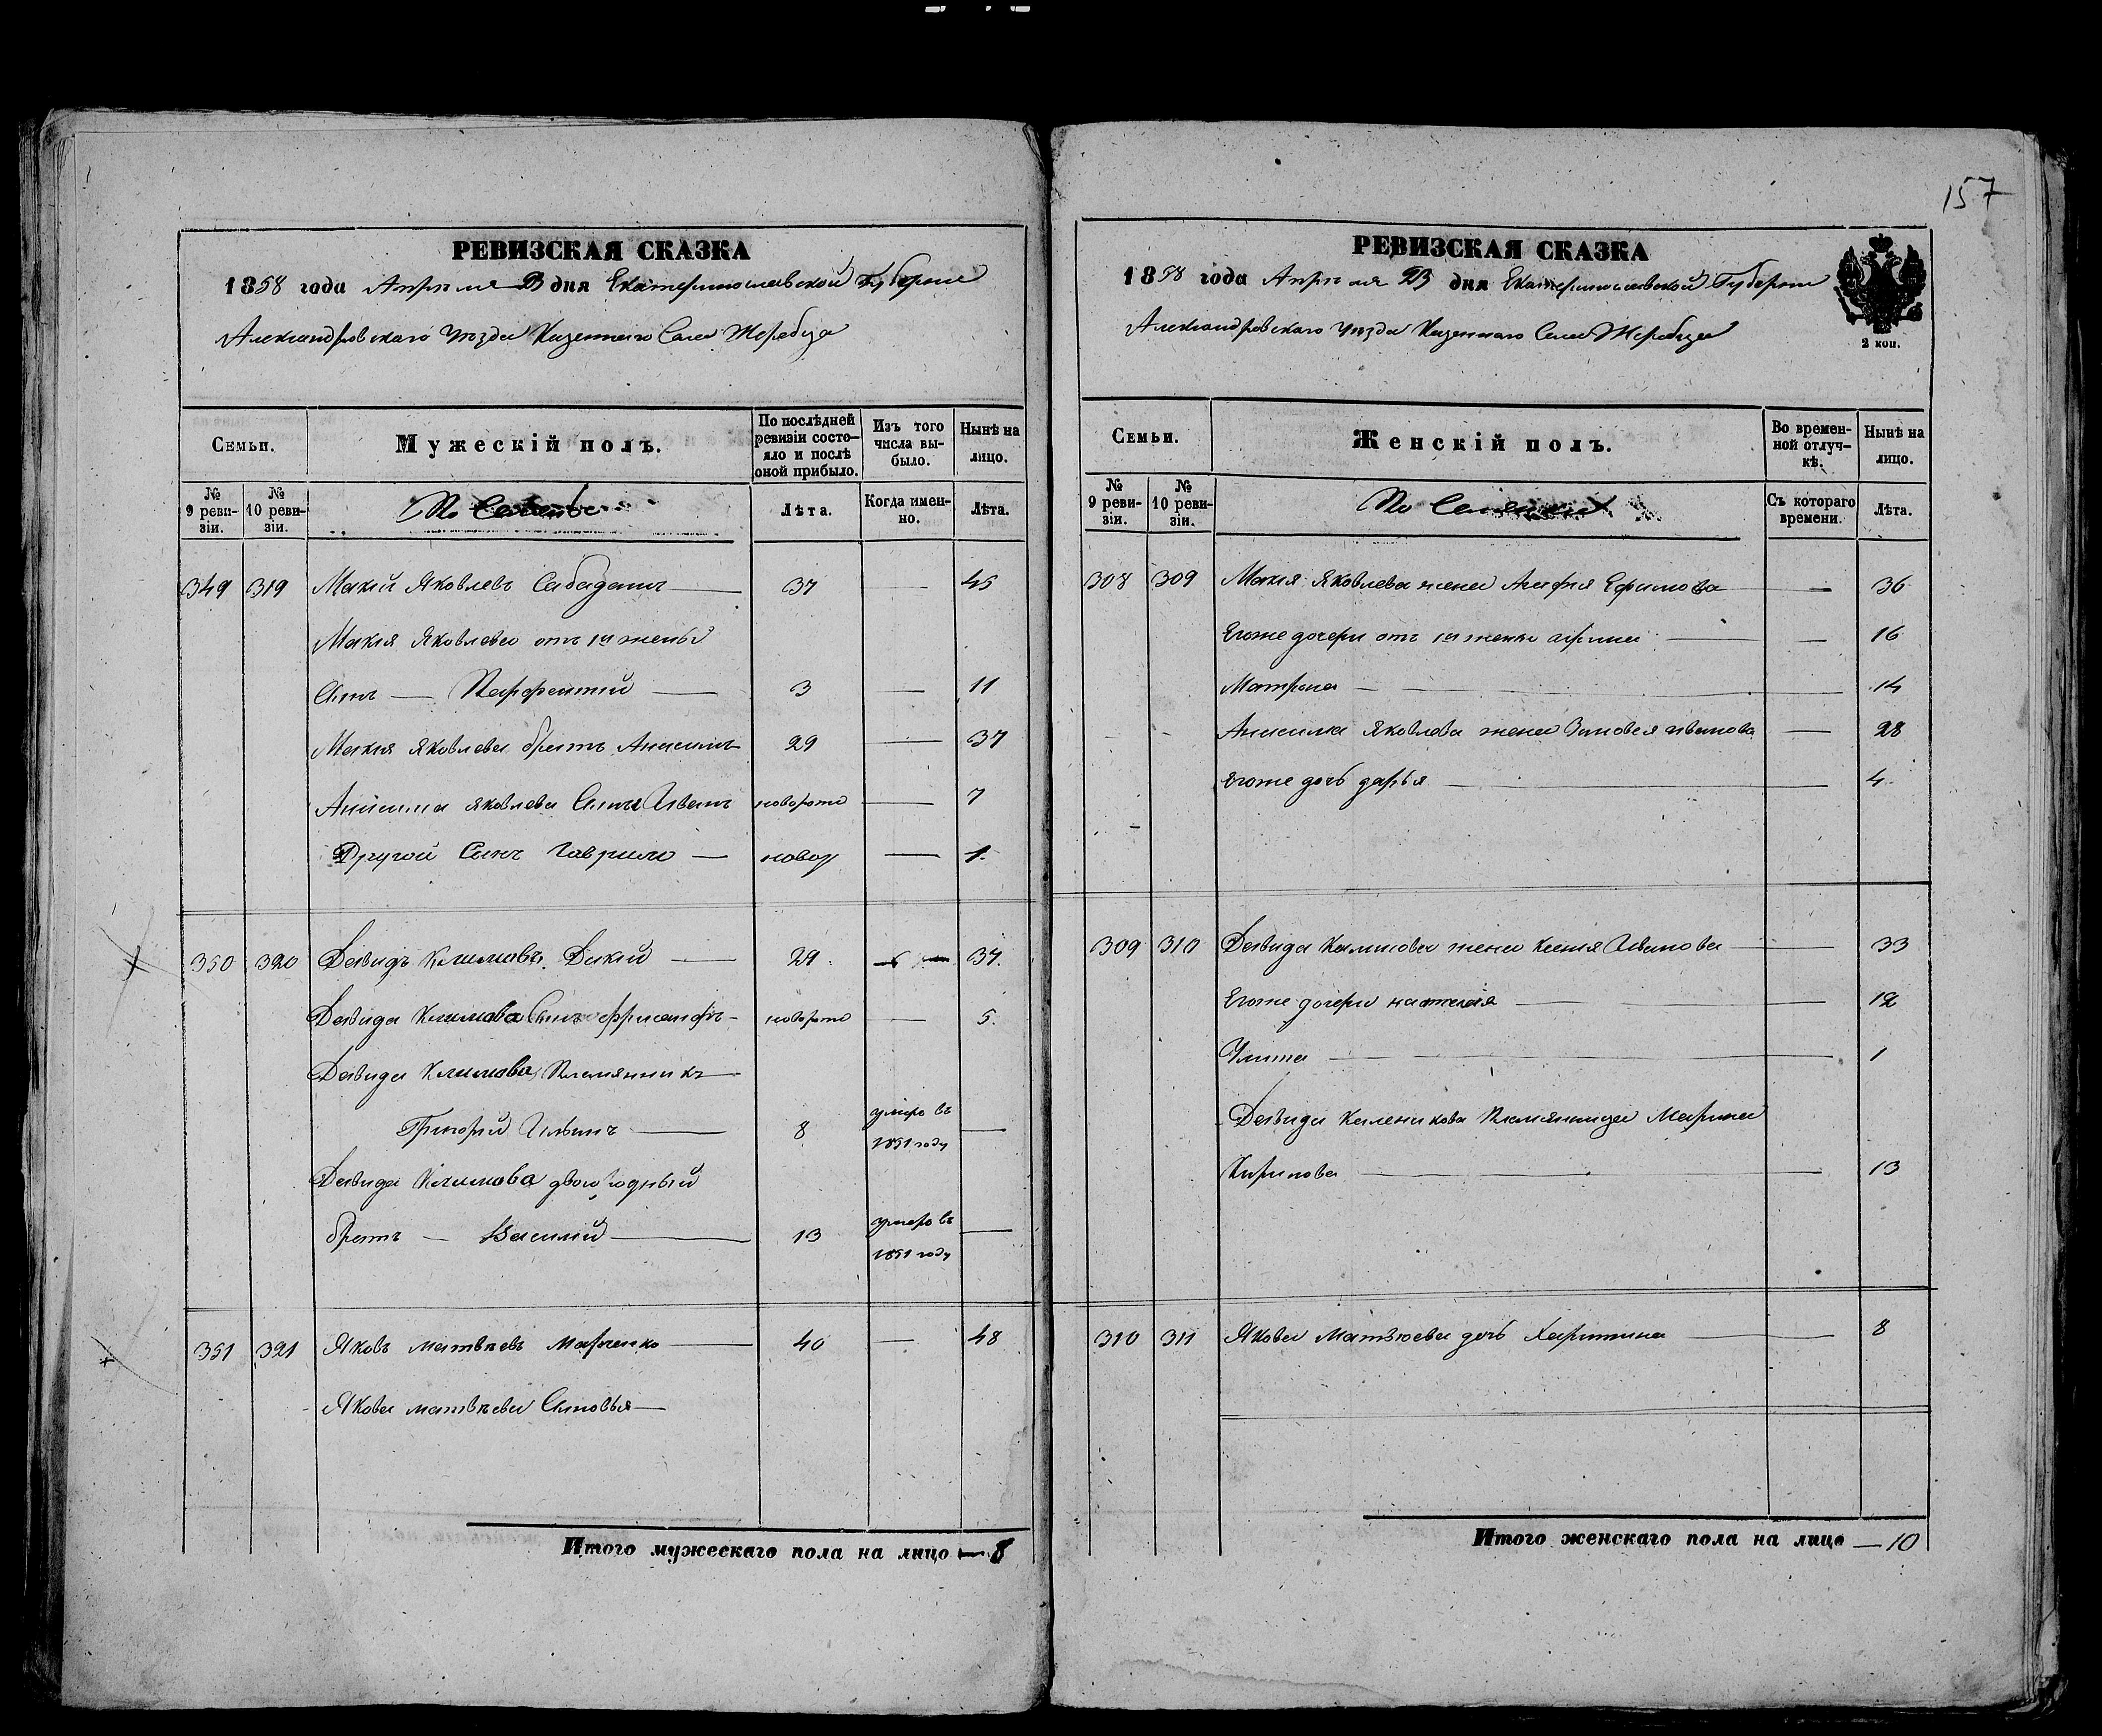 157
РЕВИЗСКАЯ СКАЗКА
1858 года Апреля 23 дня Екатеринославской Губернии
Александровскаго уезда Казеннаго Села Жеребца
Семьи.
Мужескій полъ.
По послѣдней ревизіи состояло и послѣ оной прибыло.
Изъ того числа выбыло.
Нынѣ на лицо.
№ 9 ревизіи.
№ 10 ревизіи.
Лѣта.
Когда именно.
Лѣта.
349 319 Макій Яковлевъ — 37 — 45
Макія Яковлева отъ 1й жены
Сынъ — Парфентій — 3 — 11
Макія Яковлева братъ Анисимъ 29 — 37
Анисима Яковлева Сынъ Иванъ новорож — 7
Другой Сынъ Гаврило — новор — 1.
350 320 Давидъ Климовъ Дикій — 29. — 37.
Давида Климова Сынъ новорож — 5.
Давида Климова Племянникъ —
Григорій Ильинъ — 8 умеръ въ 1851 году —
Давида Климова двоюродный
братъ — Василий — 13 умеръ въ 1851 году —
351 321 Яковъ Матвѣевъ Марченко — 40 — 48
Якова Матвѣева Сыновья —
Итого мужескаго пола на лицо — 8
РЕВИЗСКАЯ СКАЗКА
1858 года Апреля 23 дня Екатеринославской Губернии
Александровскаго уезда Казеннаго Села Жеребца
2 коп.
Семьи.
Женскій полъ.
Во временной отлучкѣ.
Нынѣ на лицо.
№ 9 ревизіи.
№ 10 ревизіи.
Съ котораго времени.
Лѣта.
308 309 Макія Яковлева жена Агафия Ефимова — 36
Егоже дочери отъ 1й жены — 16
Матрона — 14
Анисима Яковлева жена Зиновея Иванова — 28
Егоже дочь дарья — 4
309 310 Давида жена Ксения Иванова — 33
Егоже дочери настасия — 12
Улита — 1
Давида Племянница Марина
Кирилова — 13
310 311 Якова Матвѣева дочь Харитина — 8
Итого женскаго пола на лицо — 10